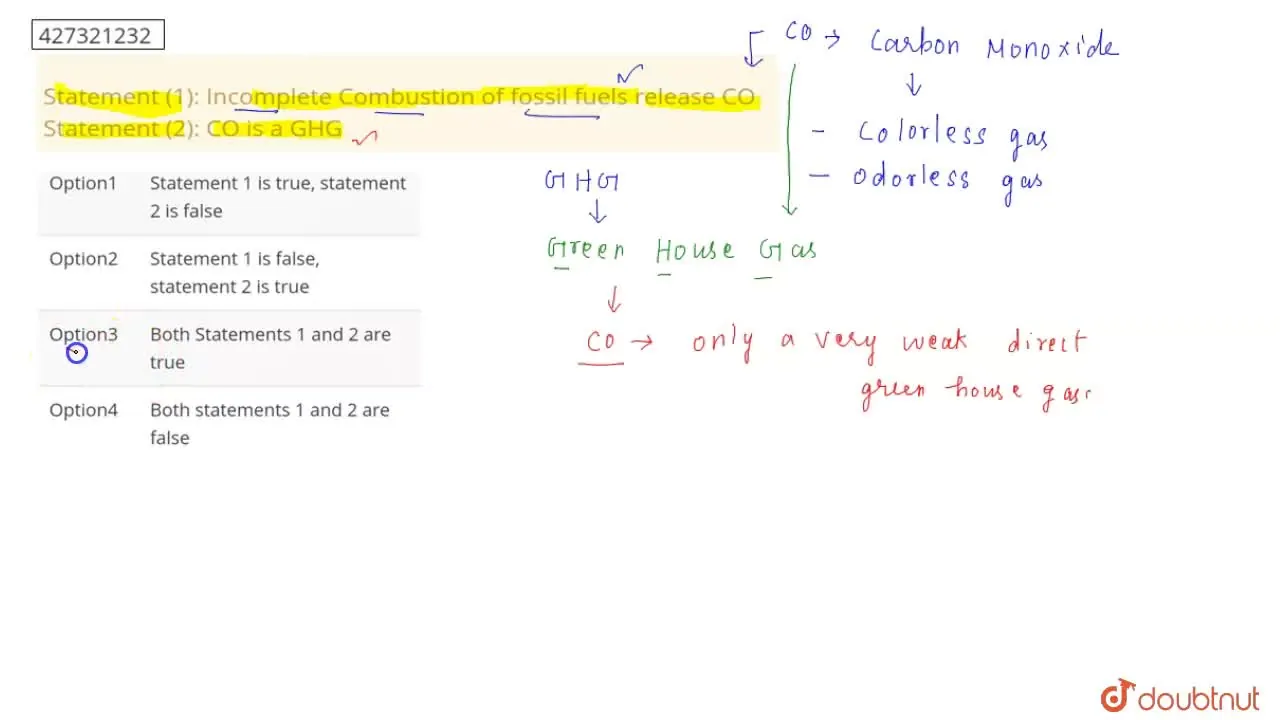 427321232
Statement (1): Incomplete Combustion of fossil fuels release CO
Statement (2): CO is a GHG
Option1 Statement 1 is true, statement
2 is false
Option2 Statement 1 is false,
statement 2 is true
Option3 Both Statements 1 and 2 are
true
Option4 Both statements 1 and 2 are
false
CO → Carbon Monoxide
- Colorless gas
- Odorless gas
GHG
Green House Gas
CO → only a very weak direct
green house gas.
doubtnut